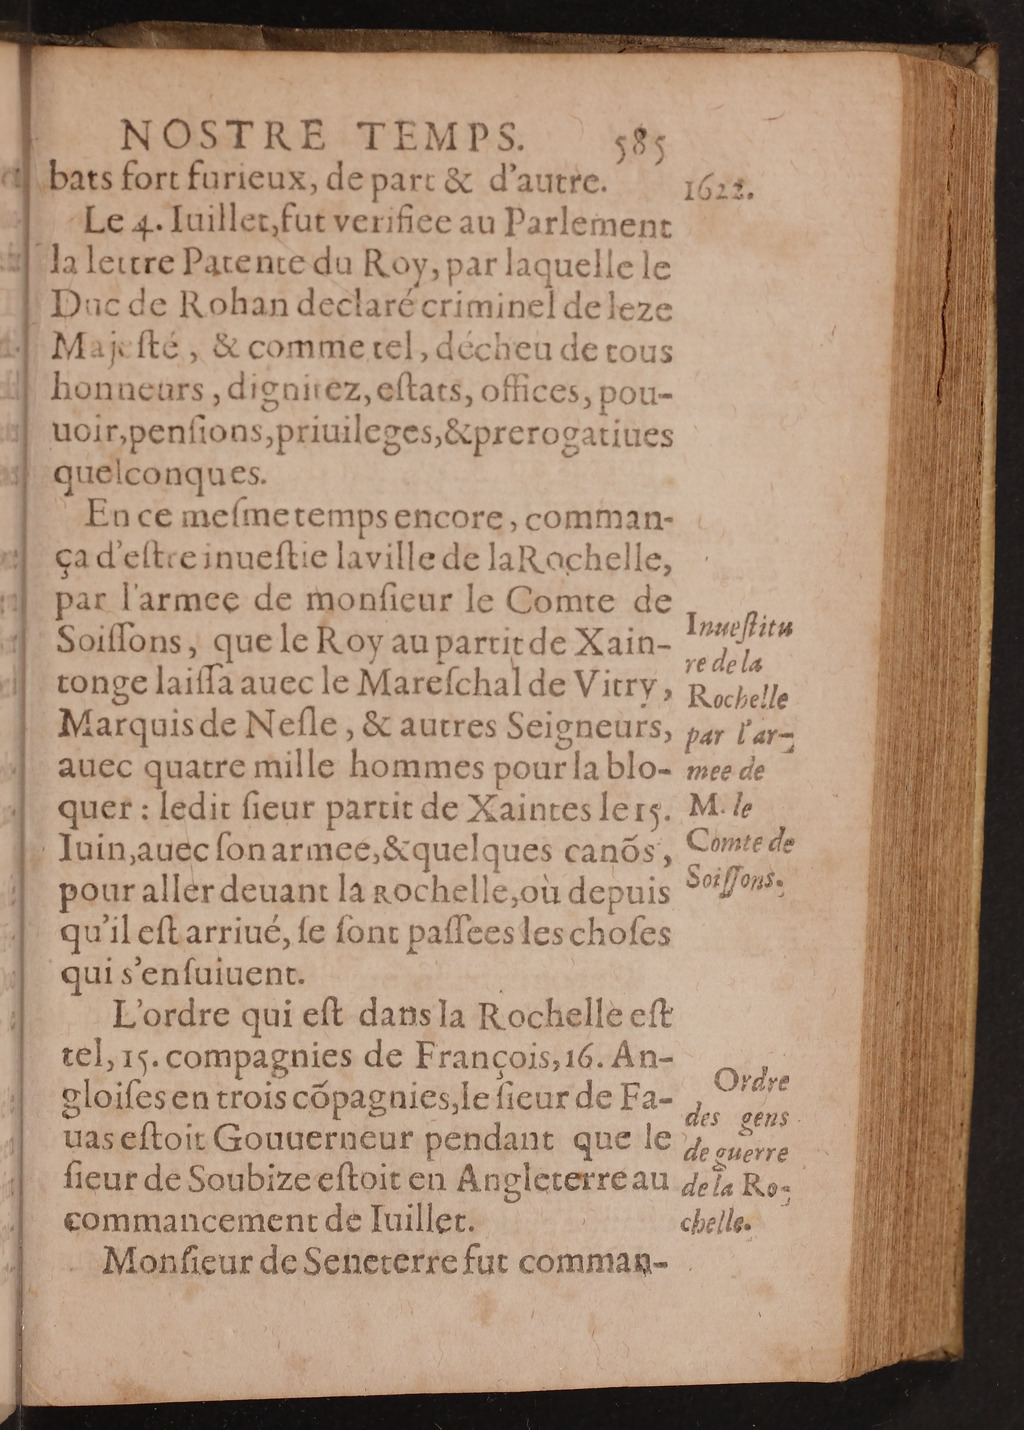 NOSTRE TEMPS. 585
bats fort furieux, de part & d'autre.
1622.
Le 4. Iuillet, fut verifiee au Parlement
la lettre Patente du Roy, par laquelle le
Duc de Rohan declaré criminel de leze
Majeſté, & comme tel, décheu de tous
honneurs, dignitez, eſtats, offices, pou-
uoir, penſions, priuileges, & prerogatiues
quelconques.
En ce meſme temps encore, comman-
ça d'eſtre inueſtie la ville de la Rochelle,
par l'armee de monſieur le Comte de
Soiſſons, que le Roy au partit de Xain-
tonge laiſſa auec le Mareſchal de Vitry,
Marquis de Neſle, & autres Seigneurs,
auec quatre mille hommes pour la blo-
quer : ledit ſieur partit de Xaintes le 15.
Iuin, auec ſon armee, & quelques canõs,
pour aller deuant la rochelle, où depuis
qu'il eſt arriué, ſe ſont paſſees les choſes
qui s'enſuiuent.
Inueſtitu
re de la
Rochelle
par l'ar-
mee de
M. le
Comte de
Soiſſons.
L'ordre qui eſt dans la Rochelle eſt
tel, 15. compagnies de François, 16. An-
gloiſes en trois cõpagnies, le ſieur de Fa-
uas eſtoit Gouuerneur pendant que le
ſieur de Soubize eſtoit en Angleterre au
commancement de Iuillet.
Ordre
des gens
de guerre
de la Ro-
chelle.
Monſieur de Seneterre fut comman-